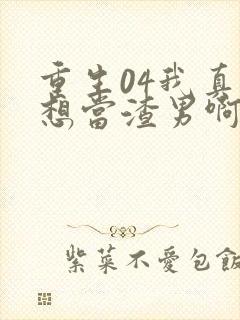 重生04我真
想當渣男啊
紫菜不愛包飯